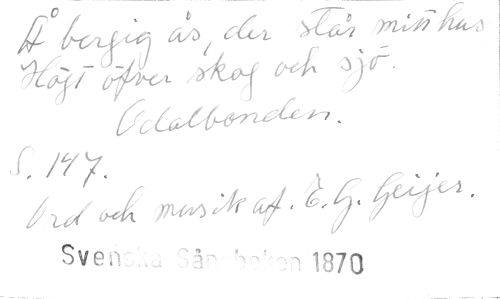 Å bergig ås, der står mitt hus
Högt öfver skog och sjö.
Odalbonden.
S. 147.
Ord och musik af. E. G. Geijer.
Svenska Sångboken 1870